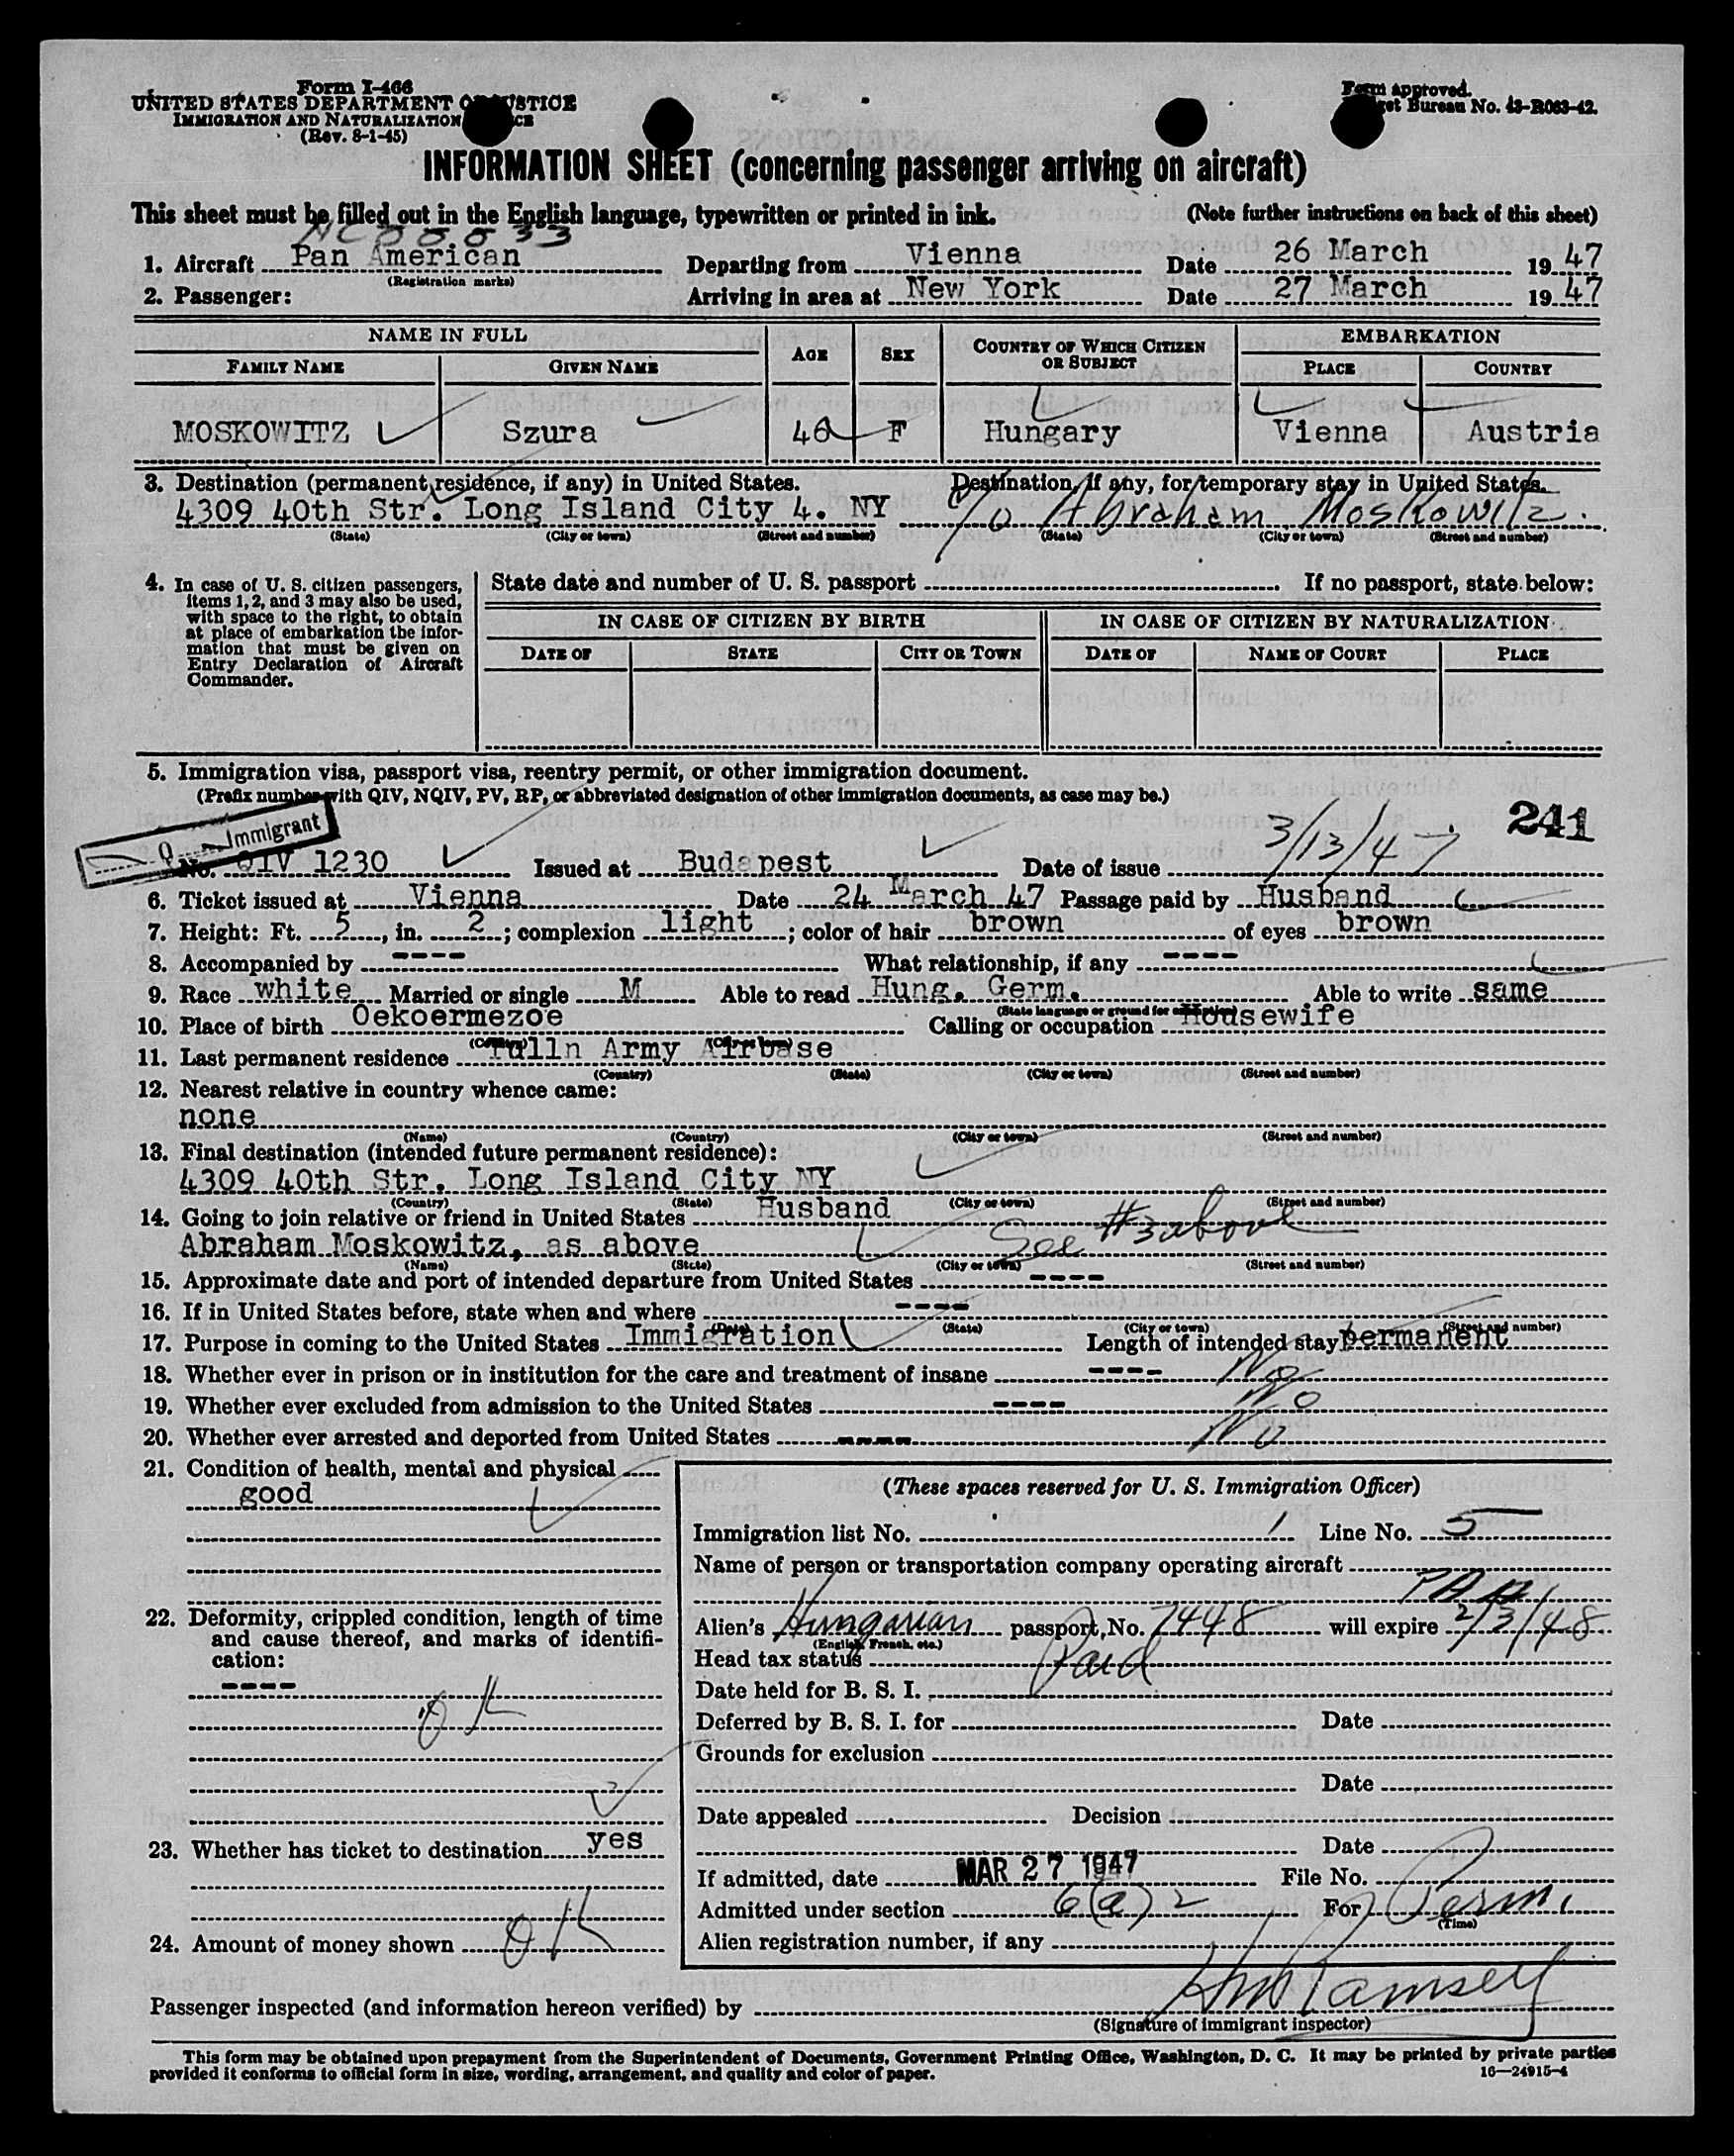 Form I-466
UNITED STATES DEPARTMENT OF JUSTICE
IMMIGRATION AND NATURALIZATION
(Rev. 8-1-45)
Form approved.
Bureau No. 43-R063-42.
INFORMATION SHEET (concerning passenger arriving on aircraft)
This sheet must be filled out in the English language, typewritten or printed in ink. (Note further instructions on back of this sheet)
1. Aircraft Pan American Departing from Vienna Date 26 March 1947
(Registration marks)
2. Passenger: Arriving in area at New York Date 27 March 1947
NAME IN FULL AGE SEX COUNTRY OF WHICH CITIZEN OR SUBJECT EMBARKATION
FAMILY NAME GIVEN NAME PLACE COUNTRY
MOSKOWITZ Szura 40 F Hungary Vienna Austria
3. Destination (permanent residence, if any) in United States. Destination, if any, for temporary stay in United States.
4309 40th Str. Long Island City 4. NY c/o Abraham Moskowitz.
(State) (City or town) (Street and number) (State) (City or town) (Street and number)
4. In case of U. S. citizen passengers, items 1, 2, and 3 may also be used, with space to the right, to obtain at place of embarkation the information that must be given on Entry Declaration of Aircraft Commander.
State date and number of U. S. passport If no passport, state below:
IN CASE OF CITIZEN BY BIRTH IN CASE OF CITIZEN BY NATURALIZATION
DATE OF STATE CITY OR TOWN DATE OF NAME OF COURT PLACE
5. Immigration visa, passport visa, reentry permit, or other immigration document.
(Prefix number with QIV, NQIV, PV, RP, or abbreviated designation of other immigration documents, as case may be.)
241
Q Immigrant
No. QIV 1230 Issued at Budapest Date of issue 3/13/47
6. Ticket issued at Vienna Date 24 March 47 Passage paid by Husband
7. Height: Ft. 5, in. 2; complexion light; color of hair brown of eyes brown
8. Accompanied by ---- What relationship, if any ----
9. Race white Married or single M Able to read Hung. Germ. Able to write same
(State language or ground for exemption)
10. Place of birth Oekoermezoe Calling or occupation Housewife
(Country) (City or town)
11. Last permanent residence Tulln Army Airbase
(Country) (State) (City or town) (Street and number)
12. Nearest relative in country whence came:
none
(Name) (Country) (City or town) (Street and number)
13. Final destination (intended future permanent residence):
4309 40th Str. Long Island City NY
(Country) (State) (City or town) (Street and number)
14. Going to join relative or friend in United States Husband
Abraham Moskowitz, as above See #3 above
(Name) (State) (City or town) (Street and number)
15. Approximate date and port of intended departure from United States ----
16. If in United States before, state when and where ----
(Date) (State) (City or town) (Street and number)
17. Purpose in coming to the United States Immigration Length of intended stay permanent
18. Whether ever in prison or in institution for the care and treatment of insane ---- No
19. Whether ever excluded from admission to the United States ---- No
20. Whether ever arrested and deported from United States ---- No
21. Condition of health, mental and physical
good
22. Deformity, crippled condition, length of time and cause thereof, and marks of identification:
----
OK
23. Whether has ticket to destination yes
24. Amount of money shown OK
(These spaces reserved for U. S. Immigration Officer)
Immigration list No. 1 Line No. 5
Name of person or transportation company operating aircraft
PAA
Alien's Hungarian passport, No. 7448 will expire 2/3/48
(English, French, etc.)
Head tax status Paid
Date held for B. S. I.
Deferred by B. S. I. for Date
Grounds for exclusion
Date
Date appealed Decision
Date
If admitted, date MAR 27 1947 File No.
Admitted under section 6(a)2 For Perm.
(Time)
Alien registration number, if any
Passenger inspected (and information hereon verified) by
(Signature of immigrant inspector)
This form may be obtained upon prepayment from the Superintendent of Documents, Government Printing Office, Washington, D. C. It may be printed by private parties
provided it conforms to official form in size, wording, arrangement, and quality and color of paper. 16—24915-4